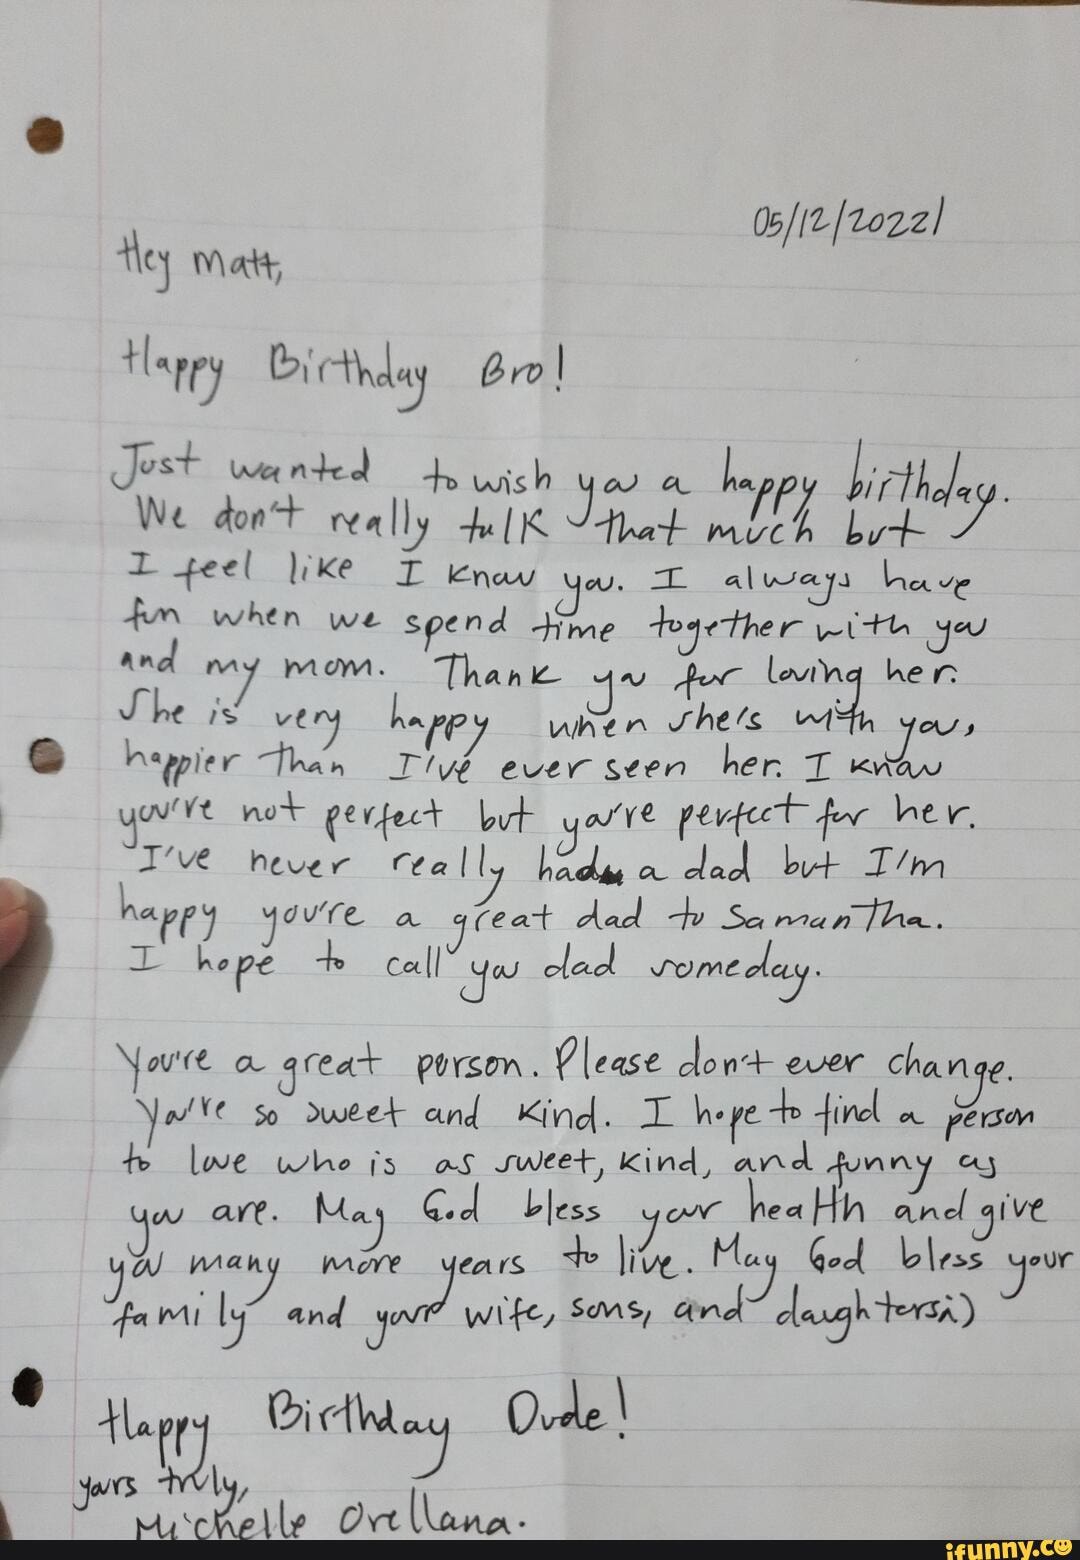 05/12/2022/
Hey Matt,
Happy Birthday Bro!
Just wanted to wish you a happy birthday.
We don't really talk that much but
I feel like I know you. I always have
fun when we spend time together with you
and my mom. Thank you for loving her.
She is very happy when she's with you,
happier than I've ever seen her. I know
you're not perfect but you're perfect for her.
I've never really had a dad but I'm
happy you're a great dad to Samantha.
I hope to call you dad someday.
You're a great person. Please don't ever change.
You're so sweet and kind. I hope to find a person
to love who is as sweet, kind, and funny as
you are. May God bless your health and give
you many more years to live. May God bless your
family and your wife, sons, and daughters:)
Happy Birthday Dude!
yours truly,
Michelle Orellana.
ifunny.co